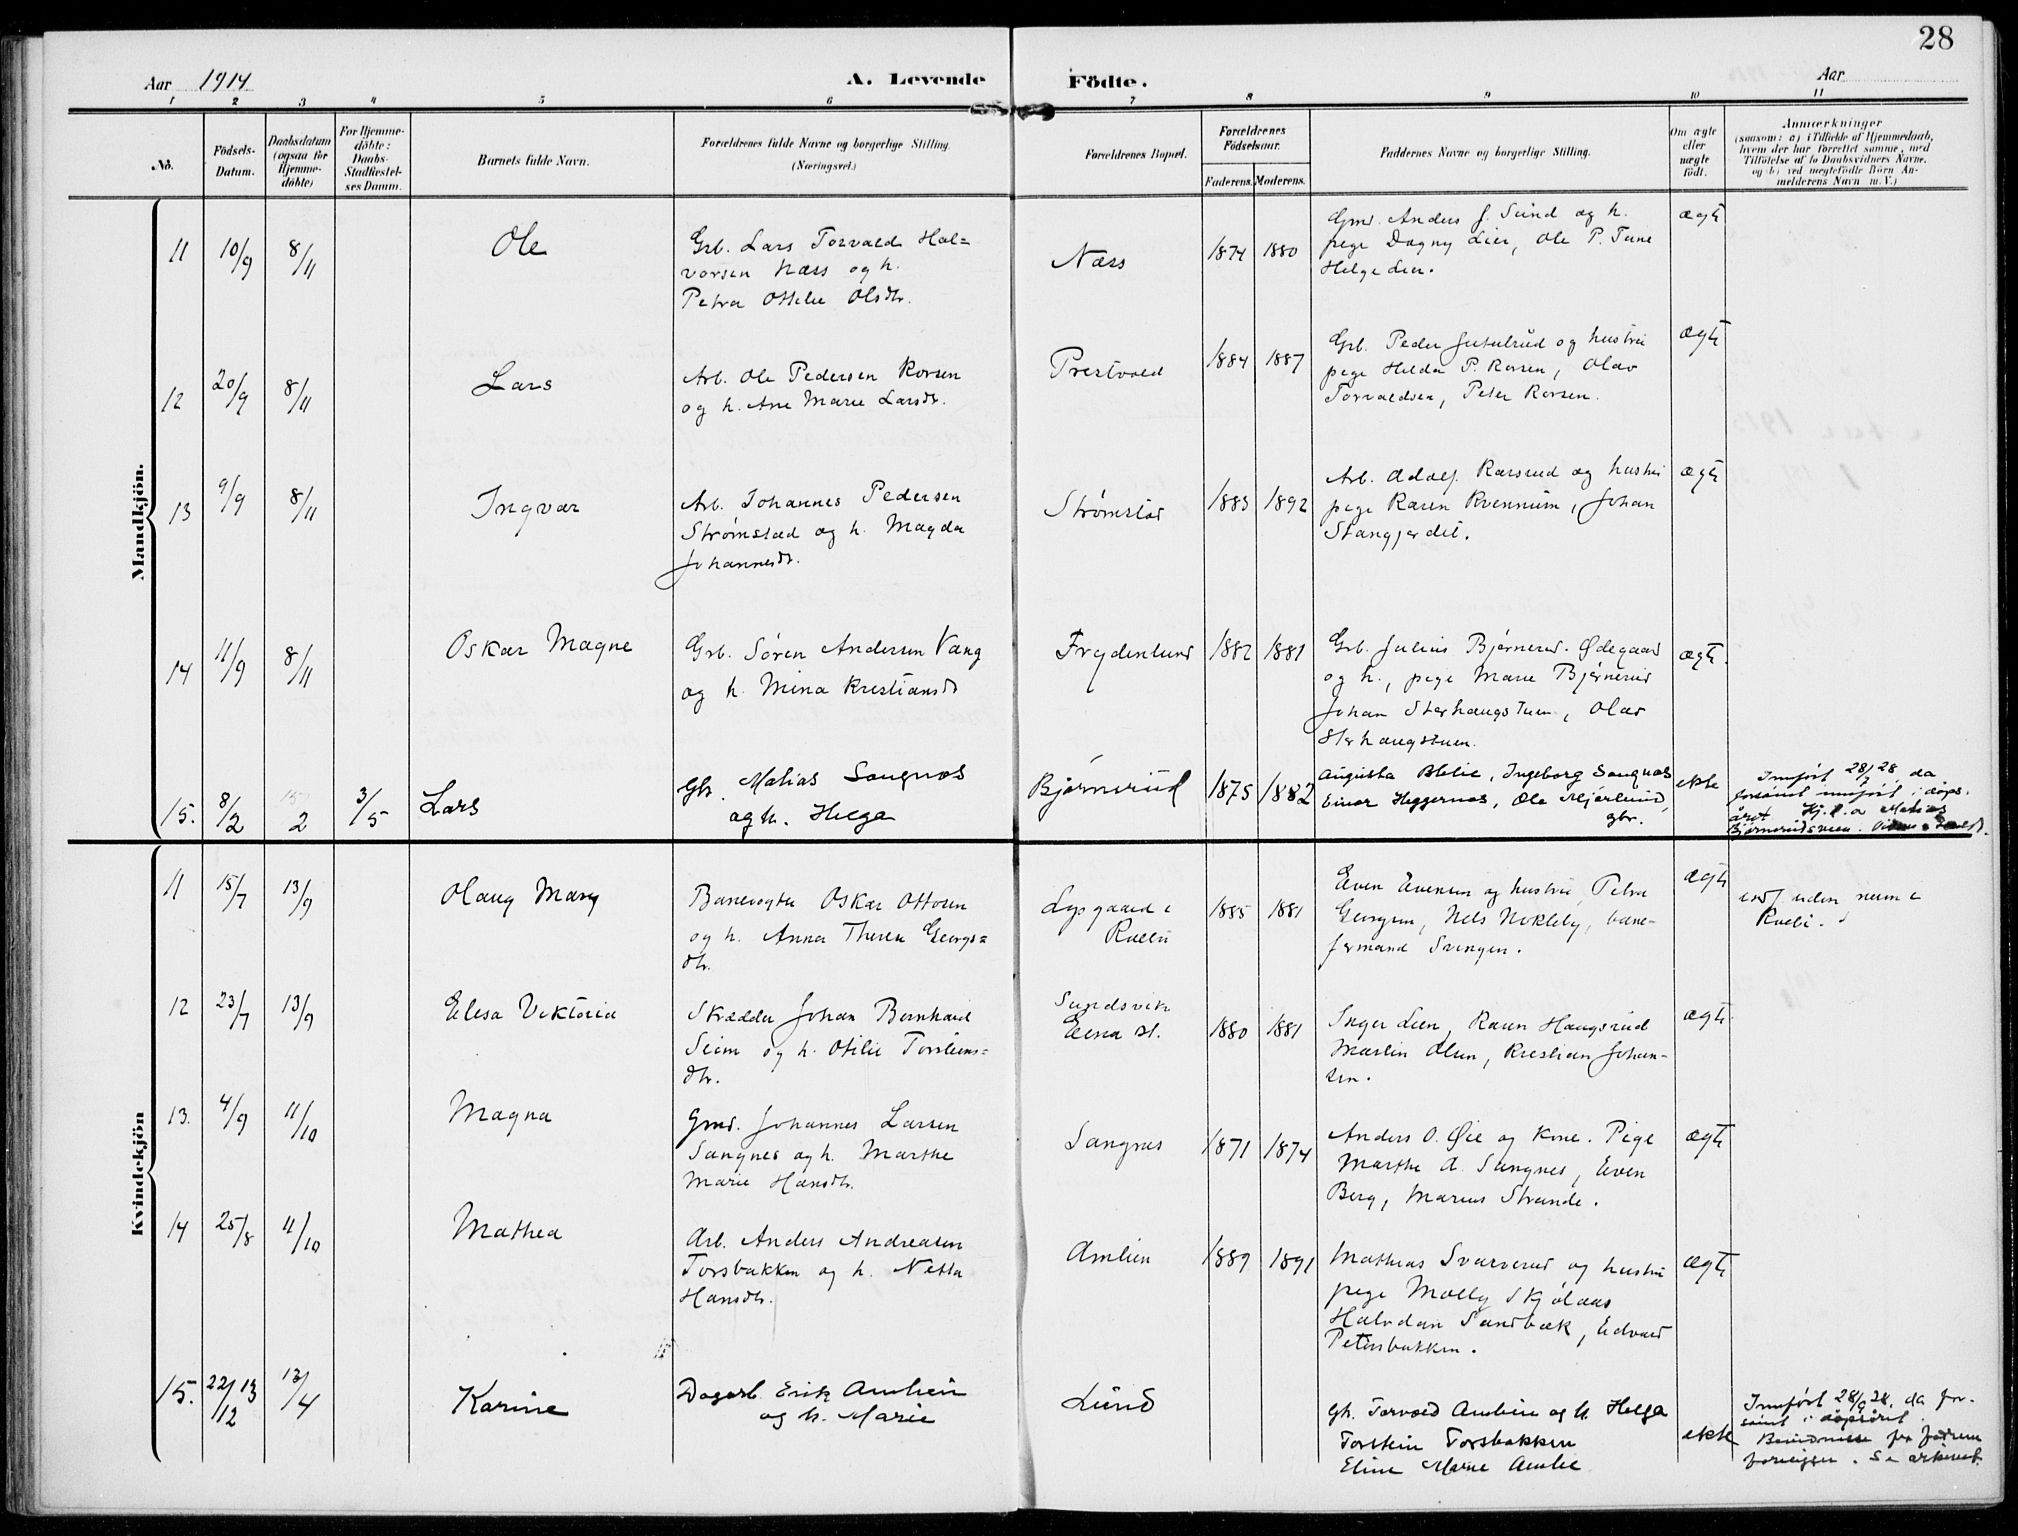 28
Aar 1914
A. Levende
Födte.
Aar
1 2 3 4 5 6 7 8 9 10 11
No.
Födsels-
Datum.
Daabsdatum
(ogsaa for
Hjemme-
döbte)
For Hjemme-
döbte:
Daabs-
Stadfæstel-
ses Datum.
Barnets fulde Navn.
Forældrenes fulde Navne og borgerlige Stilling.
(Næringsvei.)
Forældrenes Bopæl.
Forældrenes
Födselsaar.
Faderens. Moderens.
Faddernes Navne og borgerlige Stilling.
Om ægte
eller
uægte
födt.
Anmærkninger
(saasom: a) i Tilfælde af Hjemmedaab,
hvem der har forrettet samme, med
Tilföielse af to Daabsvidners Navne.
og b) ved uægtefödte Börn An-
melderens Navn m. V.)
Mandkjön.
11 10/9 8/11 Ole
Grb. Lars Torvald Hal=
vorsen Næss og h.
Petra Otilie Olsdtr.
Næss 1874 1880
Gmd. Anders J. Sund og h.
pige Dagny Lier, Ole P. Tune
Helge Lier.
ægte
12 20/9 8/11 Lars
Arb. Ole Pedersen Korsen
og h. Ane Marie Larsdtr.
Prestvold 1884 1887
Grb. Peder Jutulrud og hustru
pige Helda P. Korsen, Olav
Torvaldsen, Peter Korsen.
ægte
13 9/9 8/11 Ingvar
Arb. Johannes Pedersen
Strømstad og h. Magda
Johannesdtr.
Strømstad 1883 1892
Arb. Adolf Karsrud og hustru
pige Karen Kvennum, Johan
Stangjerdet.
ægte
14 11/9 8/11 Oskar Magne
Grb. Søren Andersen Vang
og h. Mina Kristiansdtr
Frydenlund 1882 1881
Grb. Julius Bjørnerud Ødegaard
og h., pige Marie Bjørnerud
Johan Sterhaugstuen, Olav
Sterhaugstuen.
ægte.
15. 8/2 2 3/5 Lars
Gbr. Matias Sangnæs
og h. Helga
Bjørnerud 1875 1882
Augusta Blilie, Ingeborg Sangnæs
Einar Heggernæs, Ole Mjørlund,
gbr.
ekte
Innført 28/9 28, da
forsømt innført i daps-
året. Hj. d. a Matias
Kvindekjön
11 15/7 13/9 Olaug Mary
Banevogter Oskar Ottosen
og h. Anna Therese Georgs=
dtr.
Lysgaard i
Kolbu
1885 1881
Even Evensen og hustru, Petra
Georgsen, Nels Nøkleby, bane-
formand Svingen.
ægte
indf. uden num i
Kolbu.
12 23/7 13/9 Elisa Viktoria
Skrædder Johan Bernhard
Seim og h. Otilie Torsteins=
dtr.
Sundsvik
Eina st.
1880 1881
Inger Lien, Karen Haugsrud
Martin Olsen, Kristian Johan-
sen.
ægte
13. 4/9 11/10 Magna
Gmd. Johannes Larsen
Sangnes og h. Marthe
Marie Hansdtr.
Sangnes 1871 1874
Anders O. Øie og kone. Pige
Marthe A. Sangnes, Even
Berg, Marius Strande.
ægte
14 25/8 11/10 Mathea
Arb. Anders Andreasen
Torsbakken og h. Netta
Hansdtr.
Amlien 1889 1891
Mathias Svarverud og hustru
pige Molly Skjølaas
Halvdan Sandbæk, Edvard
Petersbakken.
ægte
15. 22/12 13 13/4 Karine
Dagarb. Erik Amlien
og h. Marie
Lund
Gb. Torvald Amlien og h. Helga
Torstein Torsbakken
Eline Marie Amlie
ekte
Innført 28/9 28, da for-
sømt i dåpsåret.
Bevidnelse fra fadrene
foreligger. Se arkivet.